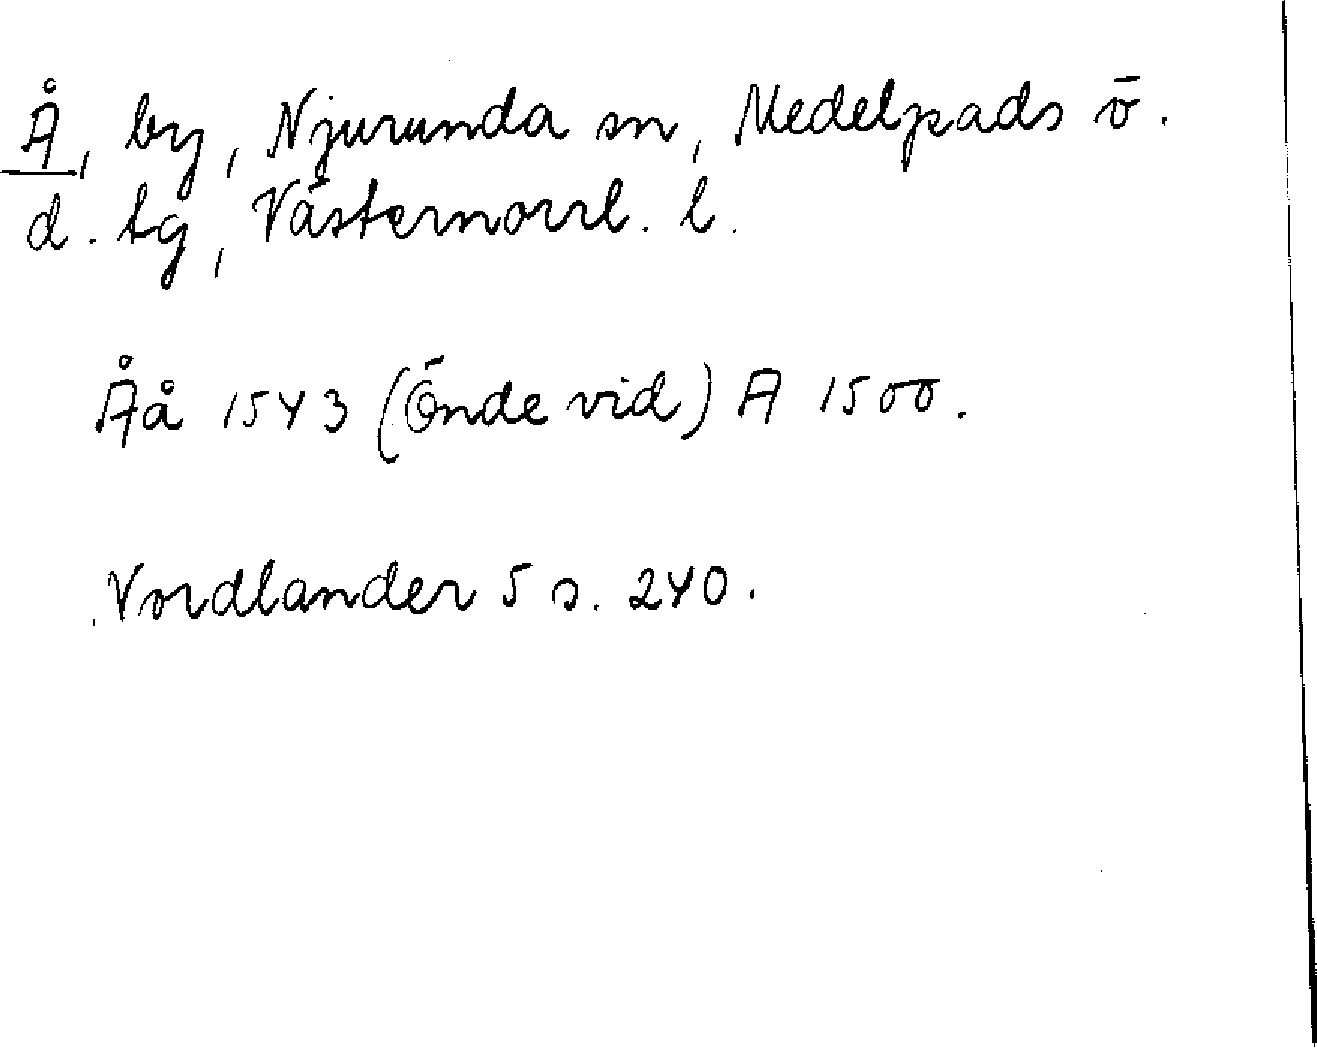 Å, by, Njurunda sn, Medelpads ö.
d. tg, Västernorrl. l.
Åå 1543 (Önde vid) A 1500.
Nordlander 5 s. 240.